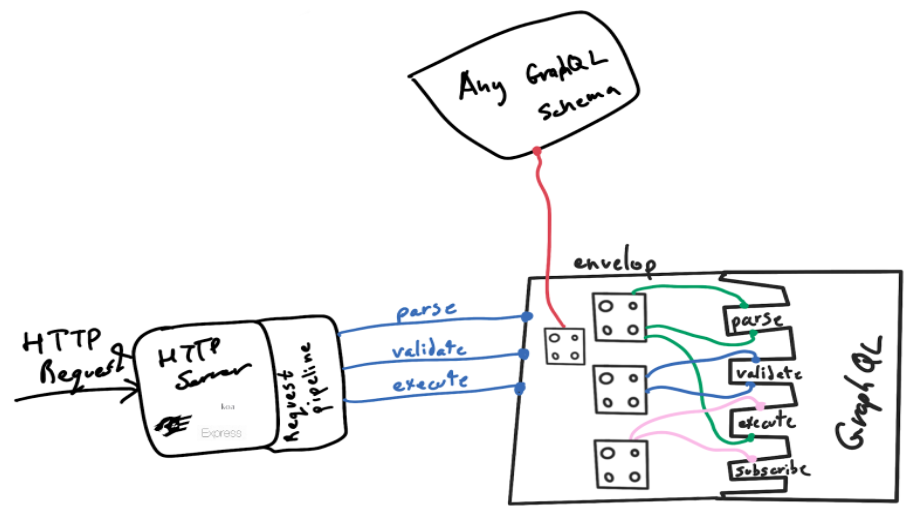 Any GraphQL
Schema
envelop
HTTP
Request
HTTP
Server
koa
Express
Request
pipeline
parse
validate
execute
parse
validate
execute
subscribe
GraphQL